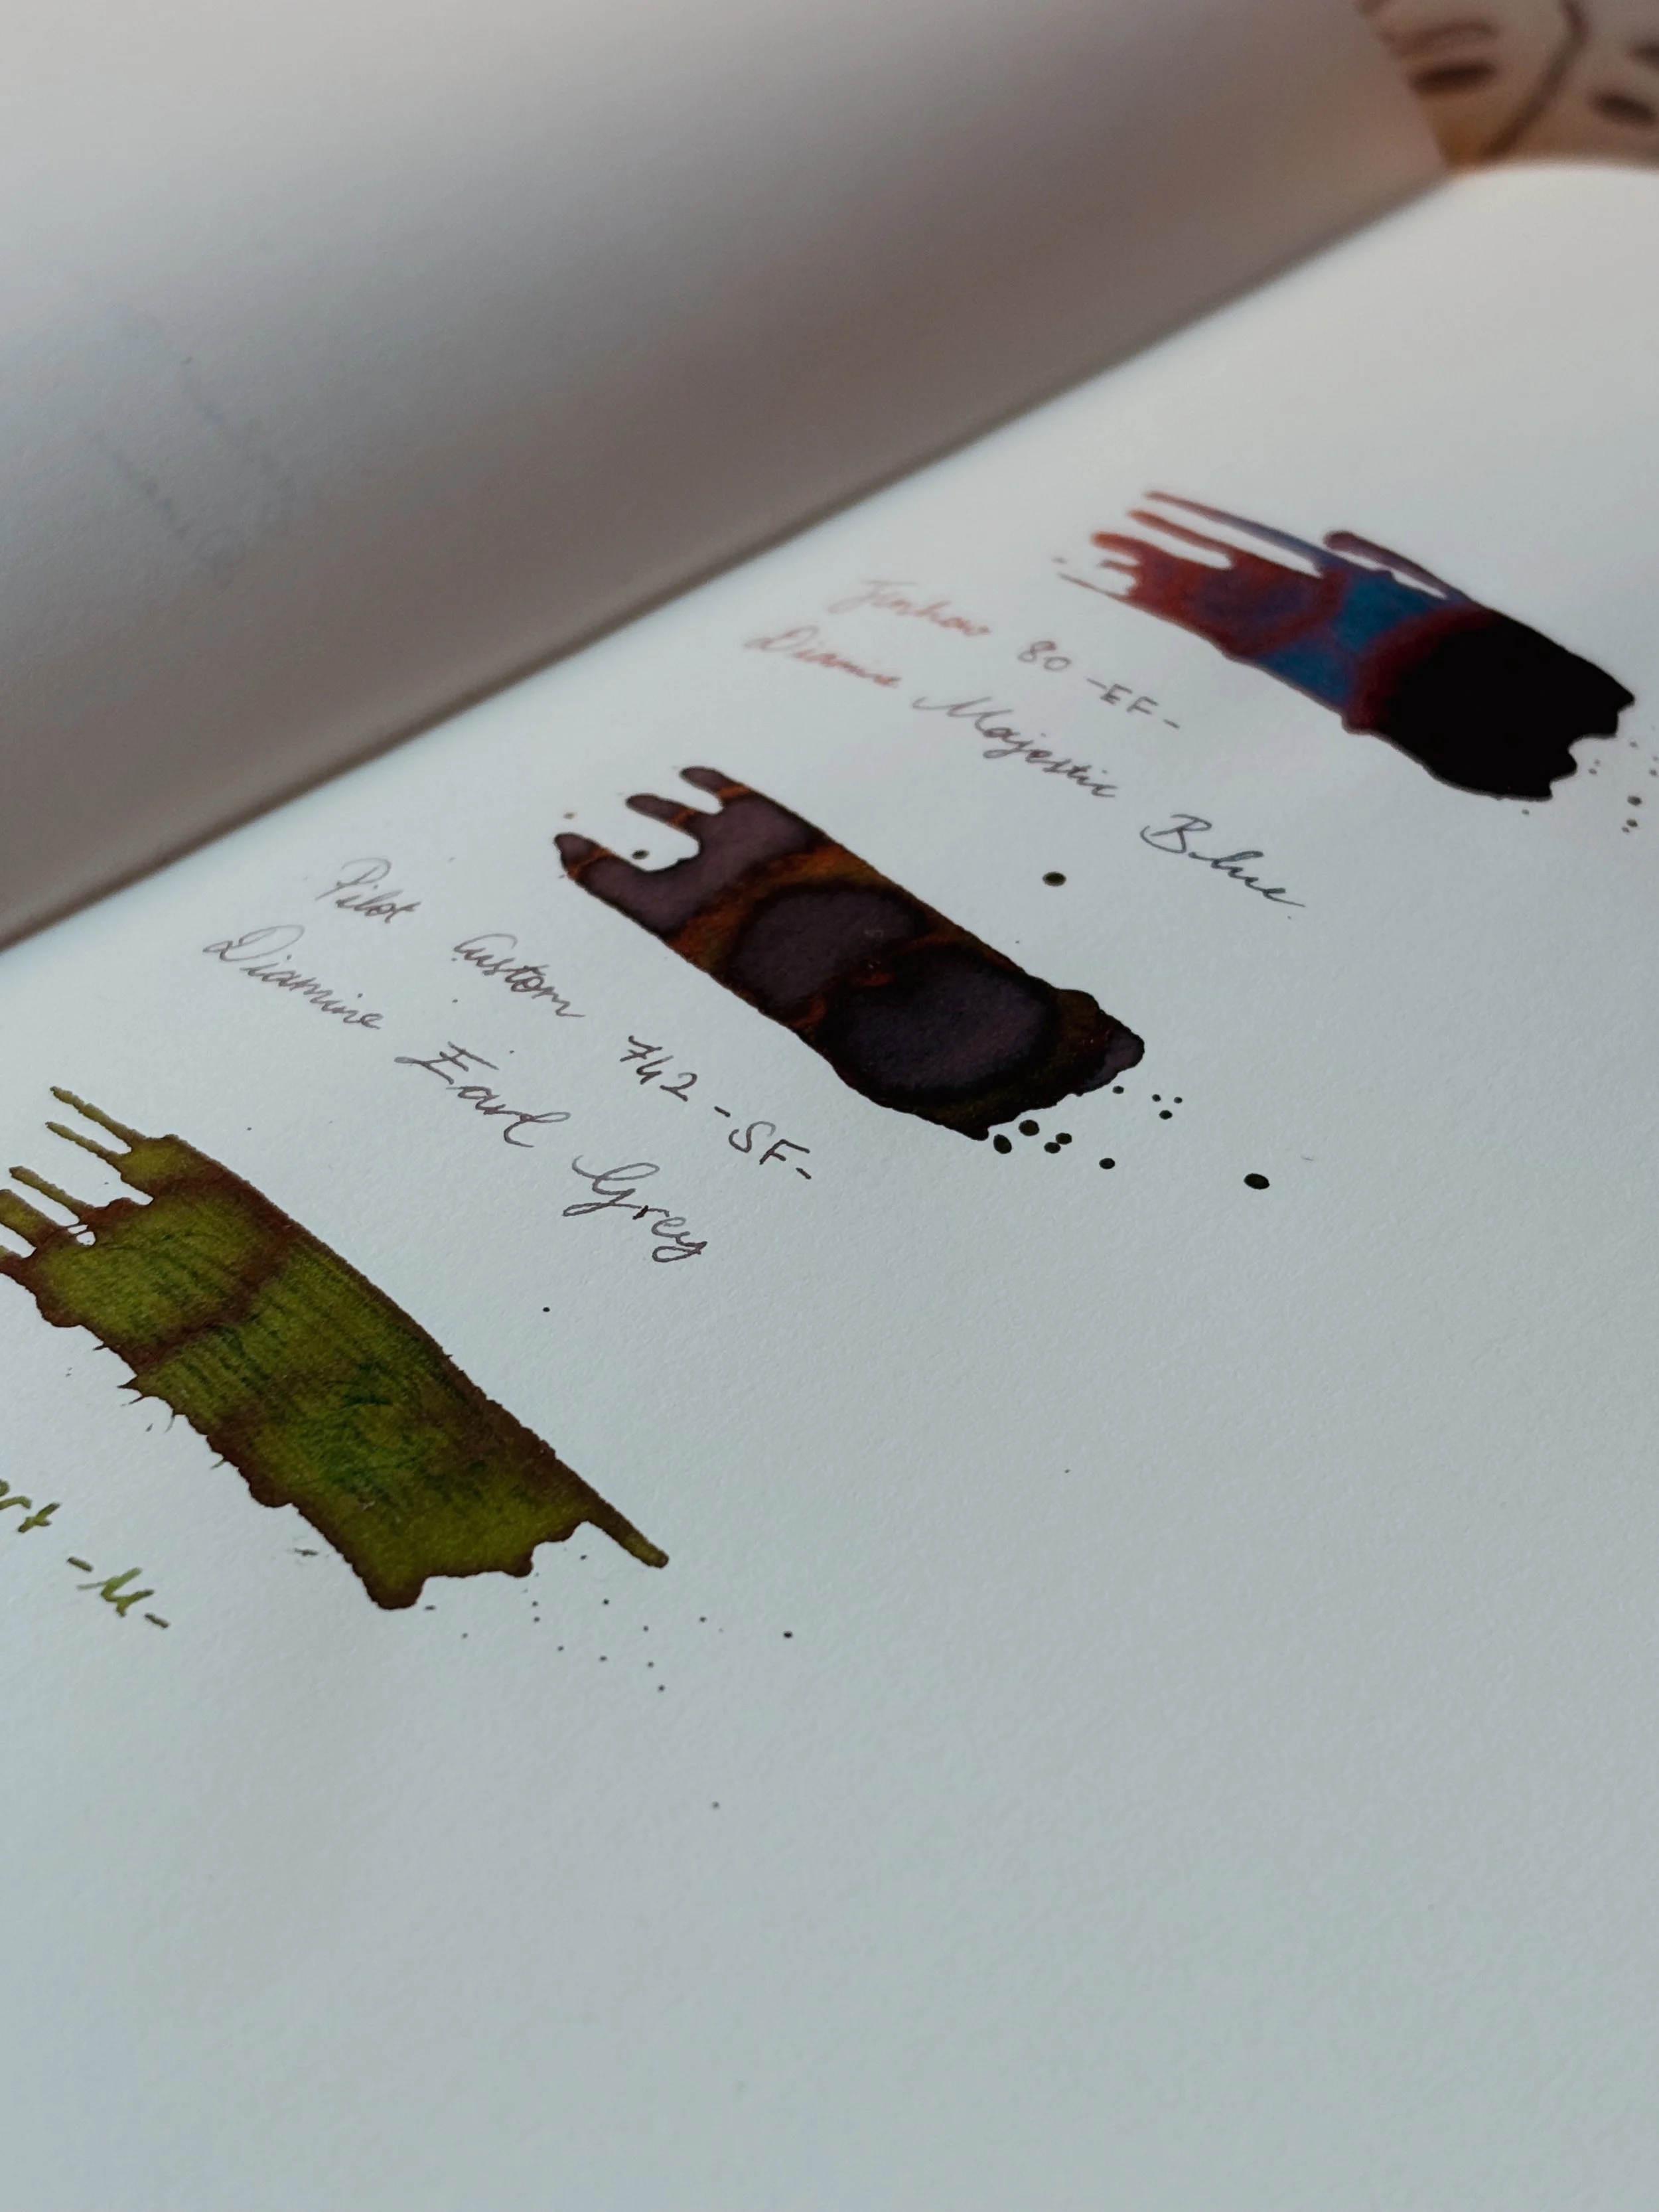 Jinhao 80 -EF-
Diamine Majestic Blue
Pilot Custom 742 -SF-
Diamine Earl Grey
-M-